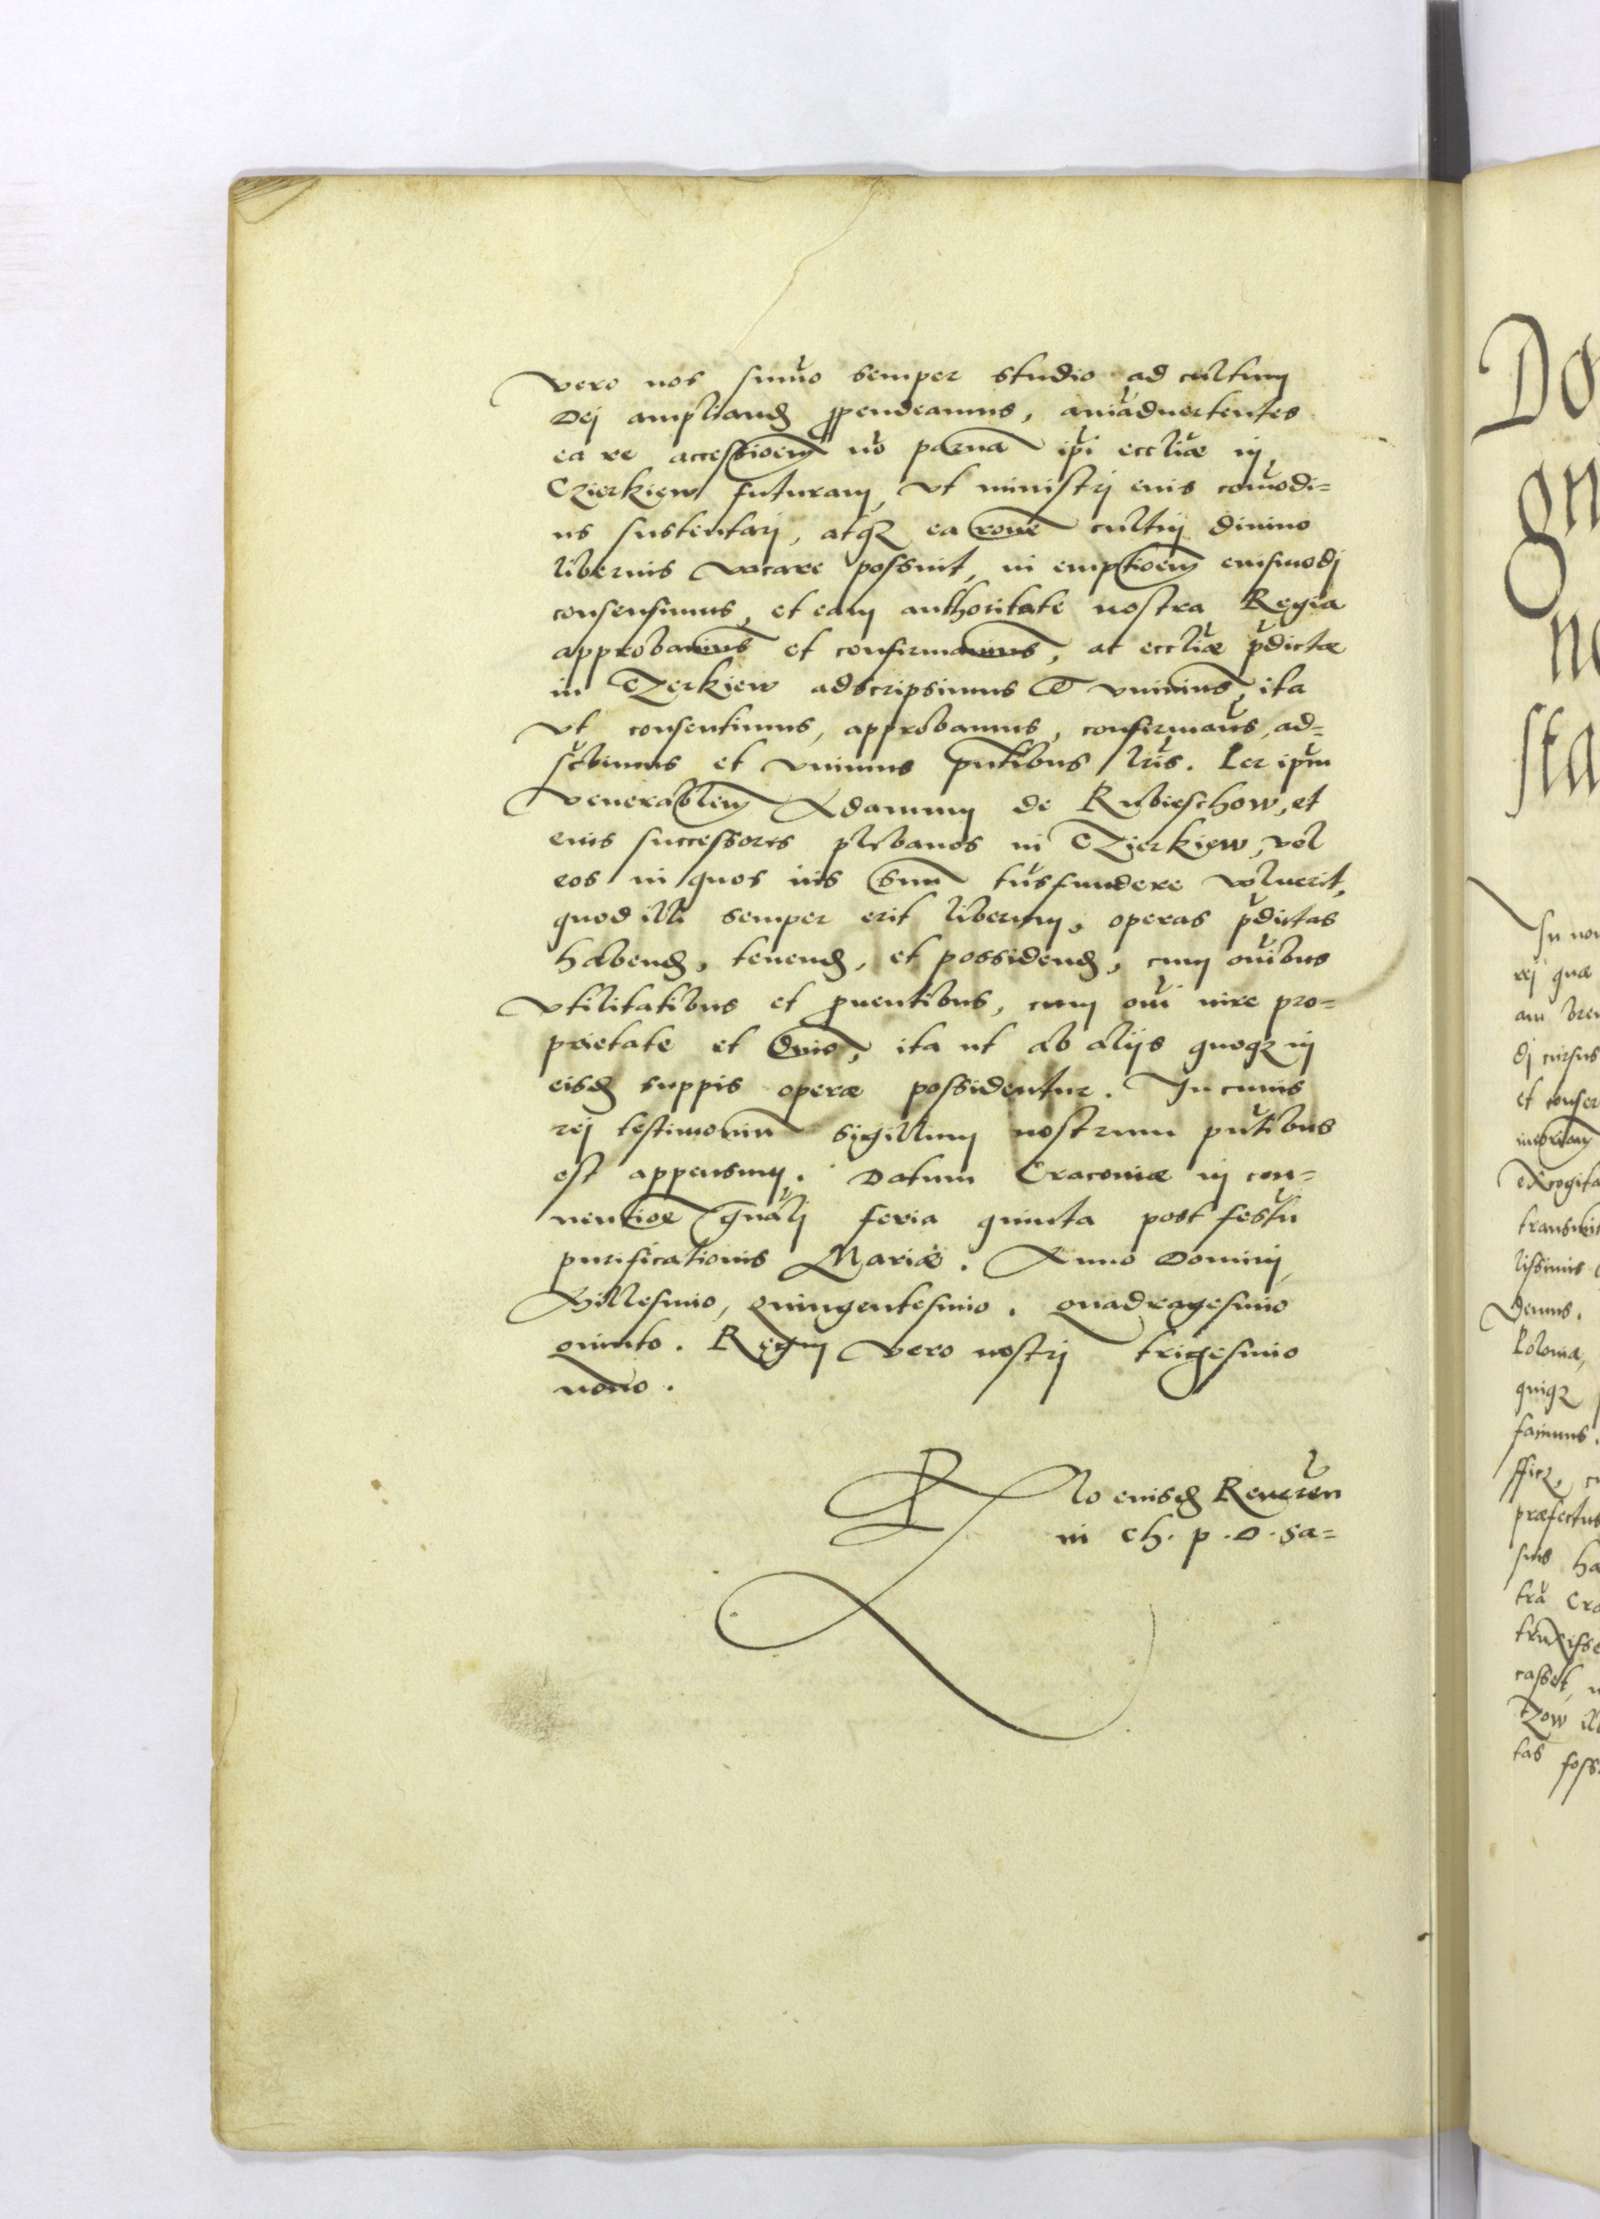 vero nos sum̃o semper studio ad cultum
Dei ampliand ꝓpendeamus, anĩaduertentes
ea re accessioem nõ paruã ip̃i eccliæ in
Czierkiew futuram, vt ministri eius com̃odi=
us sustentari, atqꝫ ea rõne cultui diuino
liberius vacare possint, in emptioem eiusmodi
consensimus, et eam authoritate nostra Regia
approbauimus et confirmauimus, ac eccliæ p̃dictæ
in Czerkiew adscripsimus & vniuimus, ita
vt consentimus, approbamus, confirmam̃s, ad=
scbimus et vnimus p̃ntibus lr̃is. Per ip̃um
Venerablem Adamum de Rubieschow, et
eius successores plebanos in Czierkiew, vel
eos in quos ius suum trãsfundere voluerit,
quod illi semper erit liberum, operas p̃dictas
habend, tenend, et possidend, cum om̃ibus
vtilitatibus et ꝓuentibus, cum om̃i iure pro=
prietate et dñio, ita ut ab alijs quoqꝫ in
eisd suppis operæ possidentur. In cuius
rei testimonium sigillum nostrum pñtibus
est appensum. Datum Cracouiæ in con=
uentioe gñali feria quinta post festũ
purificationis Mariæ. Anno Domini,
Millesimo, quingentesimo. quadragesimo
quinto. Regni vero nostri trigesimo
nono.
Rlo eiusd Reueren
in Ch. p. D. Sa=
Do
gn
no
sta
In no
rei quæ
am bre
di cursus
et conser
Excogita
transmi
lissimis
Demus.
Polonia,
quiqꝫ
faimus.
præfectus
suis ha
trã Cra
truxisse
casset,
Czow ill
tas foss